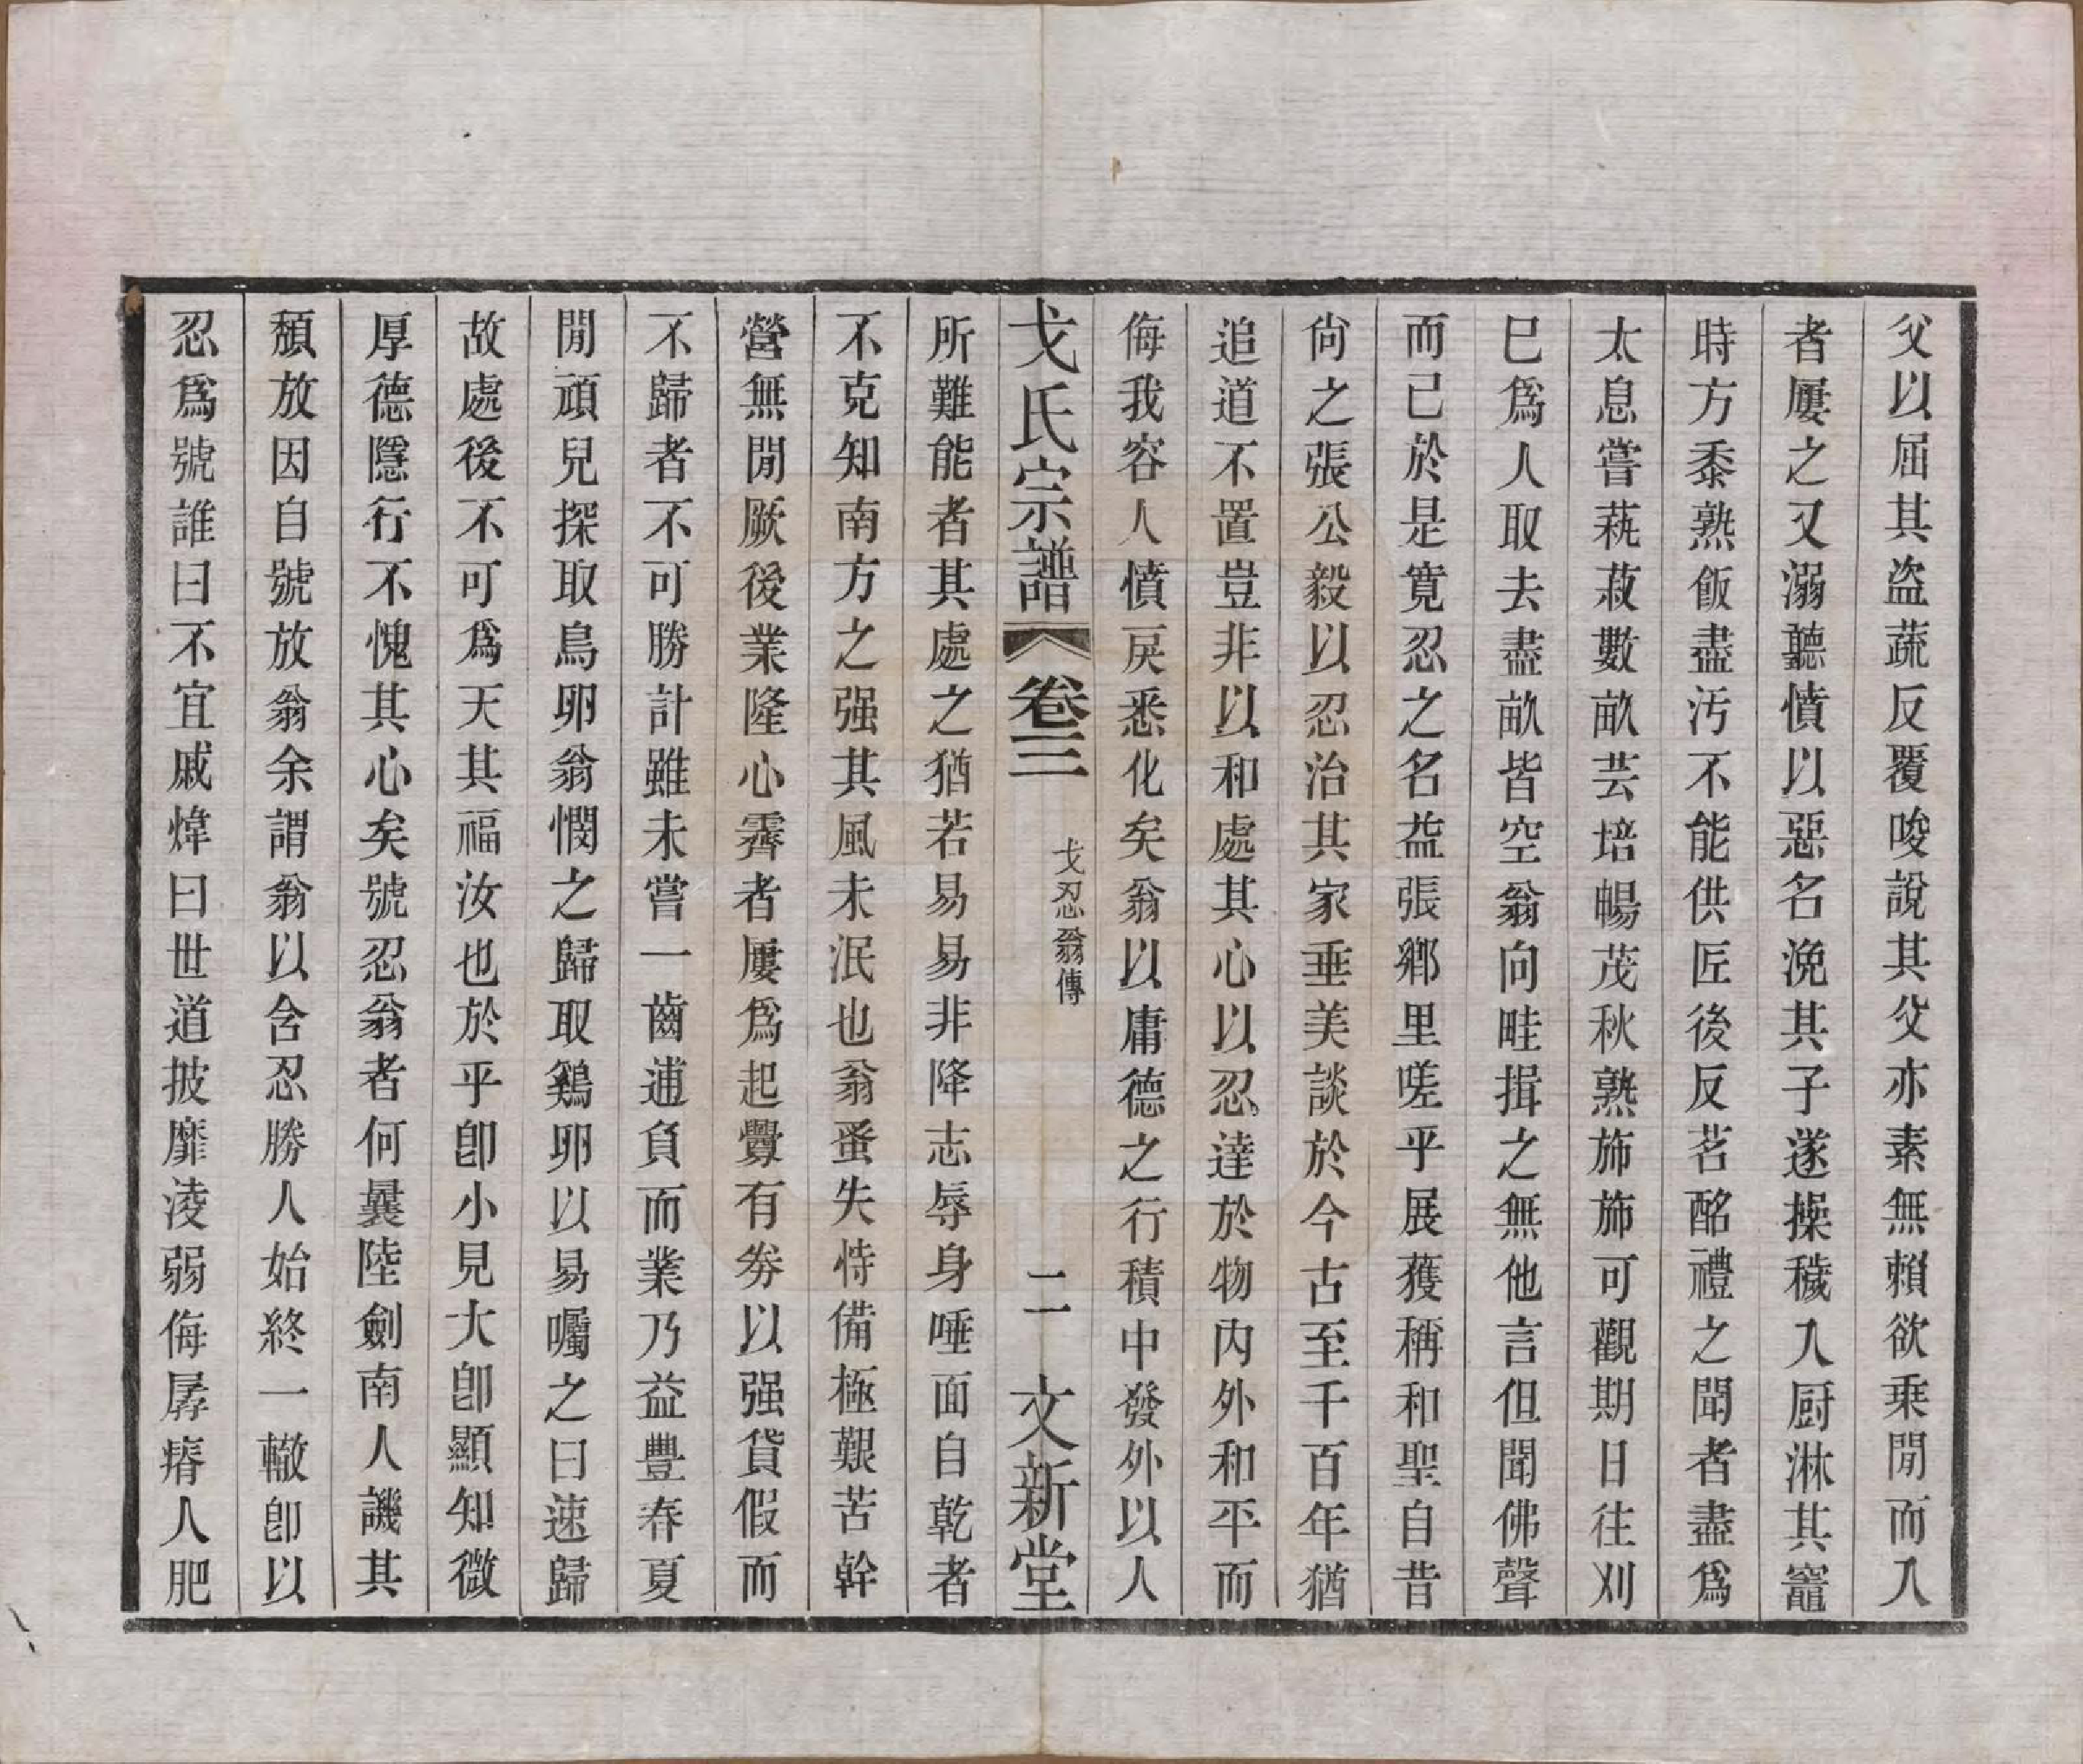 父以屈其盗蔬反覆唆說其父亦素無賴欲乗閒而入
者屢之又溺聽憤以惡名浼其子遂操穢入厨淋其竈
時方黍熟飯盡汚不能供匠後反茗酩禮之聞者盡爲
太息嘗蓺菽數畝芸培暢茂秋熟斾斾可觀期日往刈
巳爲人取去盡畝皆空翁向畦揖之無他言但聞佛聲
而己於是寛忍之名益張郷里嗟乎展獲稱和聖自昔
尙之張公毅以忍治其家垂美談於今古至千百年猶
追道不置豈非以和處其心以忍達於物内外和平而
侮我容人憤戾悉化矣翁以庸德之行積中發外以人
戈氏宗譜 卷三 戈忍翁傳 二 文新堂
所難能者其處之猶若易易非降志辱身唾面自乾者
不克知南方之强其風未泯也翁蚤失恃備極艱苦幹
營無閒厥後業隆心霽者屢爲起釁有劵以强貸假而
不歸者不可勝計雖未嘗一齒逋負而業乃益豐春夏
閒頑兒探取鳥卵翁憫之歸取鷄卵以易囑之曰速歸
故處後不可爲天其福汝也於乎卽小見大卽顯知微
厚德隱行不愧其心矣號忍翁者何曩陸劍南人譏其
頽放因自號放翁余謂翁以含忍勝人始終一轍卽以
忍爲號誰曰不宜戚煒曰世道披靡淩弱侮孱瘠人肥